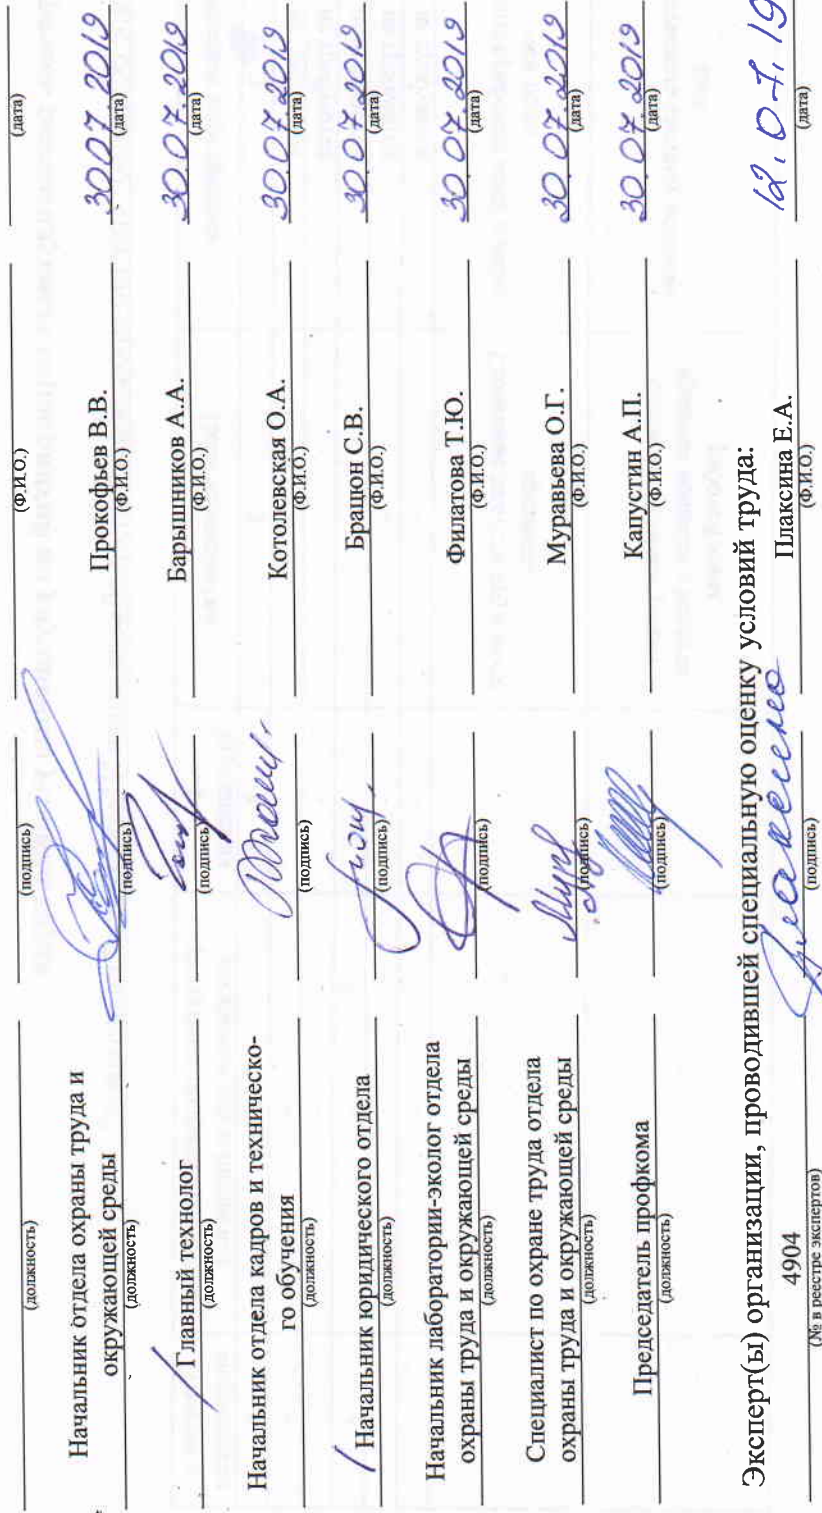 (должность) (подпись) (Ф.И.О.) (дата)
Начальник отдела охраны труда и
окружающей среды Прокофьев В.В. 30 07 2019
(должность) (подпись) (Ф.И.О.) (дата)
Главный технолог Барышников А.А. 30 07 2019
(должность) (подпись) (Ф.И.О.) (дата)
Начальник отдела кадров и техническо-
го обучения Котолевская О.А. 30 07 2019
(должность) (подпись) (Ф.И.О.) (дата)
Начальник юридического отдела Бращон С.В. 30 07 2019
(должность) (подпись) (Ф.И.О.) (дата)
Начальник лаборатории-эколог отдела
охраны труда и окружающей среды Филатова Т.Ю. 30 07 2019
(должность) (подпись) (Ф.И.О.) (дата)
Специалист по охране труда отдела
охраны труда и окружающей среды Муравьева О.Г. 30 07 2019
(должность) (подпись) (Ф.И.О.) (дата)
Председатель профкома Капустин А.П. 30 07 2019
(должность) (подпись) (Ф.И.О.) (дата)
Эксперт(ы) организации, проводившей специальную оценку условий труда:
4904 Плаксина Е.А. 12.07.19
(№ в реестре экспертов) (подпись) (Ф.И.О.) (дата)